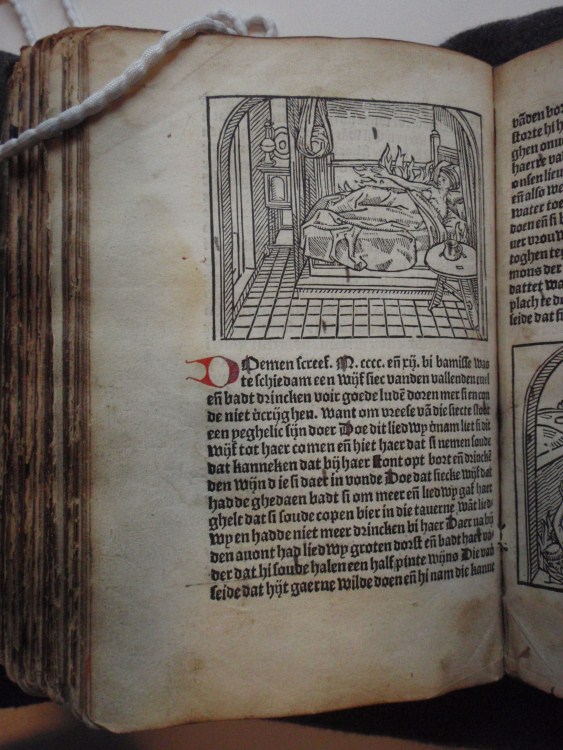 DOemen screef. M. cccc. eñ xij. bi bamisse was
te schiedam een wijf siec vanden vallenden euel
eñ badt drincken voir goede ludē doren mer si en con
de niet v̄crijghen. Want om vreese vā die siecte
een yeghelic sijn Doe dit liedwy v̄nam liet si dit
wijf tot haer comen eñ hiet haer dat si nemen soude
dat kanneken dat bij haer stont opt bort eñ drinckē
den wijn d ie si daer in vonde Doe dat siecke wijf dat
hadde ghedaen badt si om meer eñ liedwy gaf haer
ghelt dat si soude copen bier in die tauerne wāt lied
wy en hadde niet meer drincken bi haer Daer na bij
den auont had liedwy groten dorst eñ badt haer va
der dat hi soude halen een half pinte wijns Die vad
seide dat hijt gaerne wilde doen eñ hi nam die kanne
vādē vor
storte hi h
ghen onu
haer te va
onsen lieu
eñ also we
water toe
doen eñ si
uer vrou
toghen te
mous der
dattet wa
plachte d
seide dat si